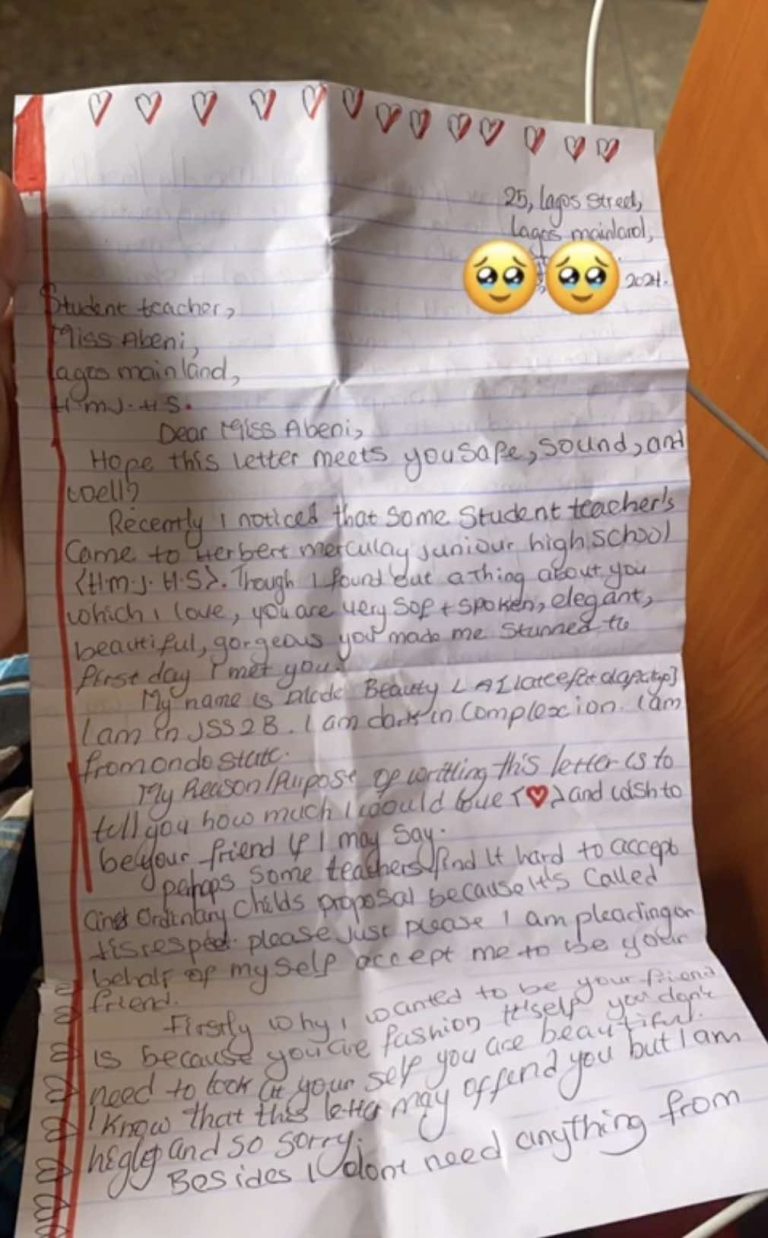 25, Lagos Street,
Lagos mainland,
2024.
Student teacher,
Miss Abeni,
Lagos mainland,
H.M.J.H.S.
Dear Miss Abeni,
Hope this letter meets you safe, sound, and
well?
Recently I noticed that some Student teacher's
Came to Herbert merculay juniour high school
<H.m.J.H.S>. Though I found out a thing about you
which i love, you are very soft spoken, elegant,
beautiful, gorgeous you made me stunned the
first day I met you.
My name is Beauty
I am in JSS2B. I am dark in Complexcion. I am
from ondo state.
My Reason/Purpose of writting this letter is to
tell you how much I would love <♥> and wish to
be your friend if I may say.
perhaps some teachers find it hard to accept
Ordinary childs proposal because it's called
disrespect. please just please I am pleading on
behalf of my self accept me to be your
friend.
Firstly why i wanted to be your friend
is because you are fashion itself you don't
need to look at your self you are beautiful.
I know that this letter may offend you but I am
and so sorry.
Besides I don't need anything from